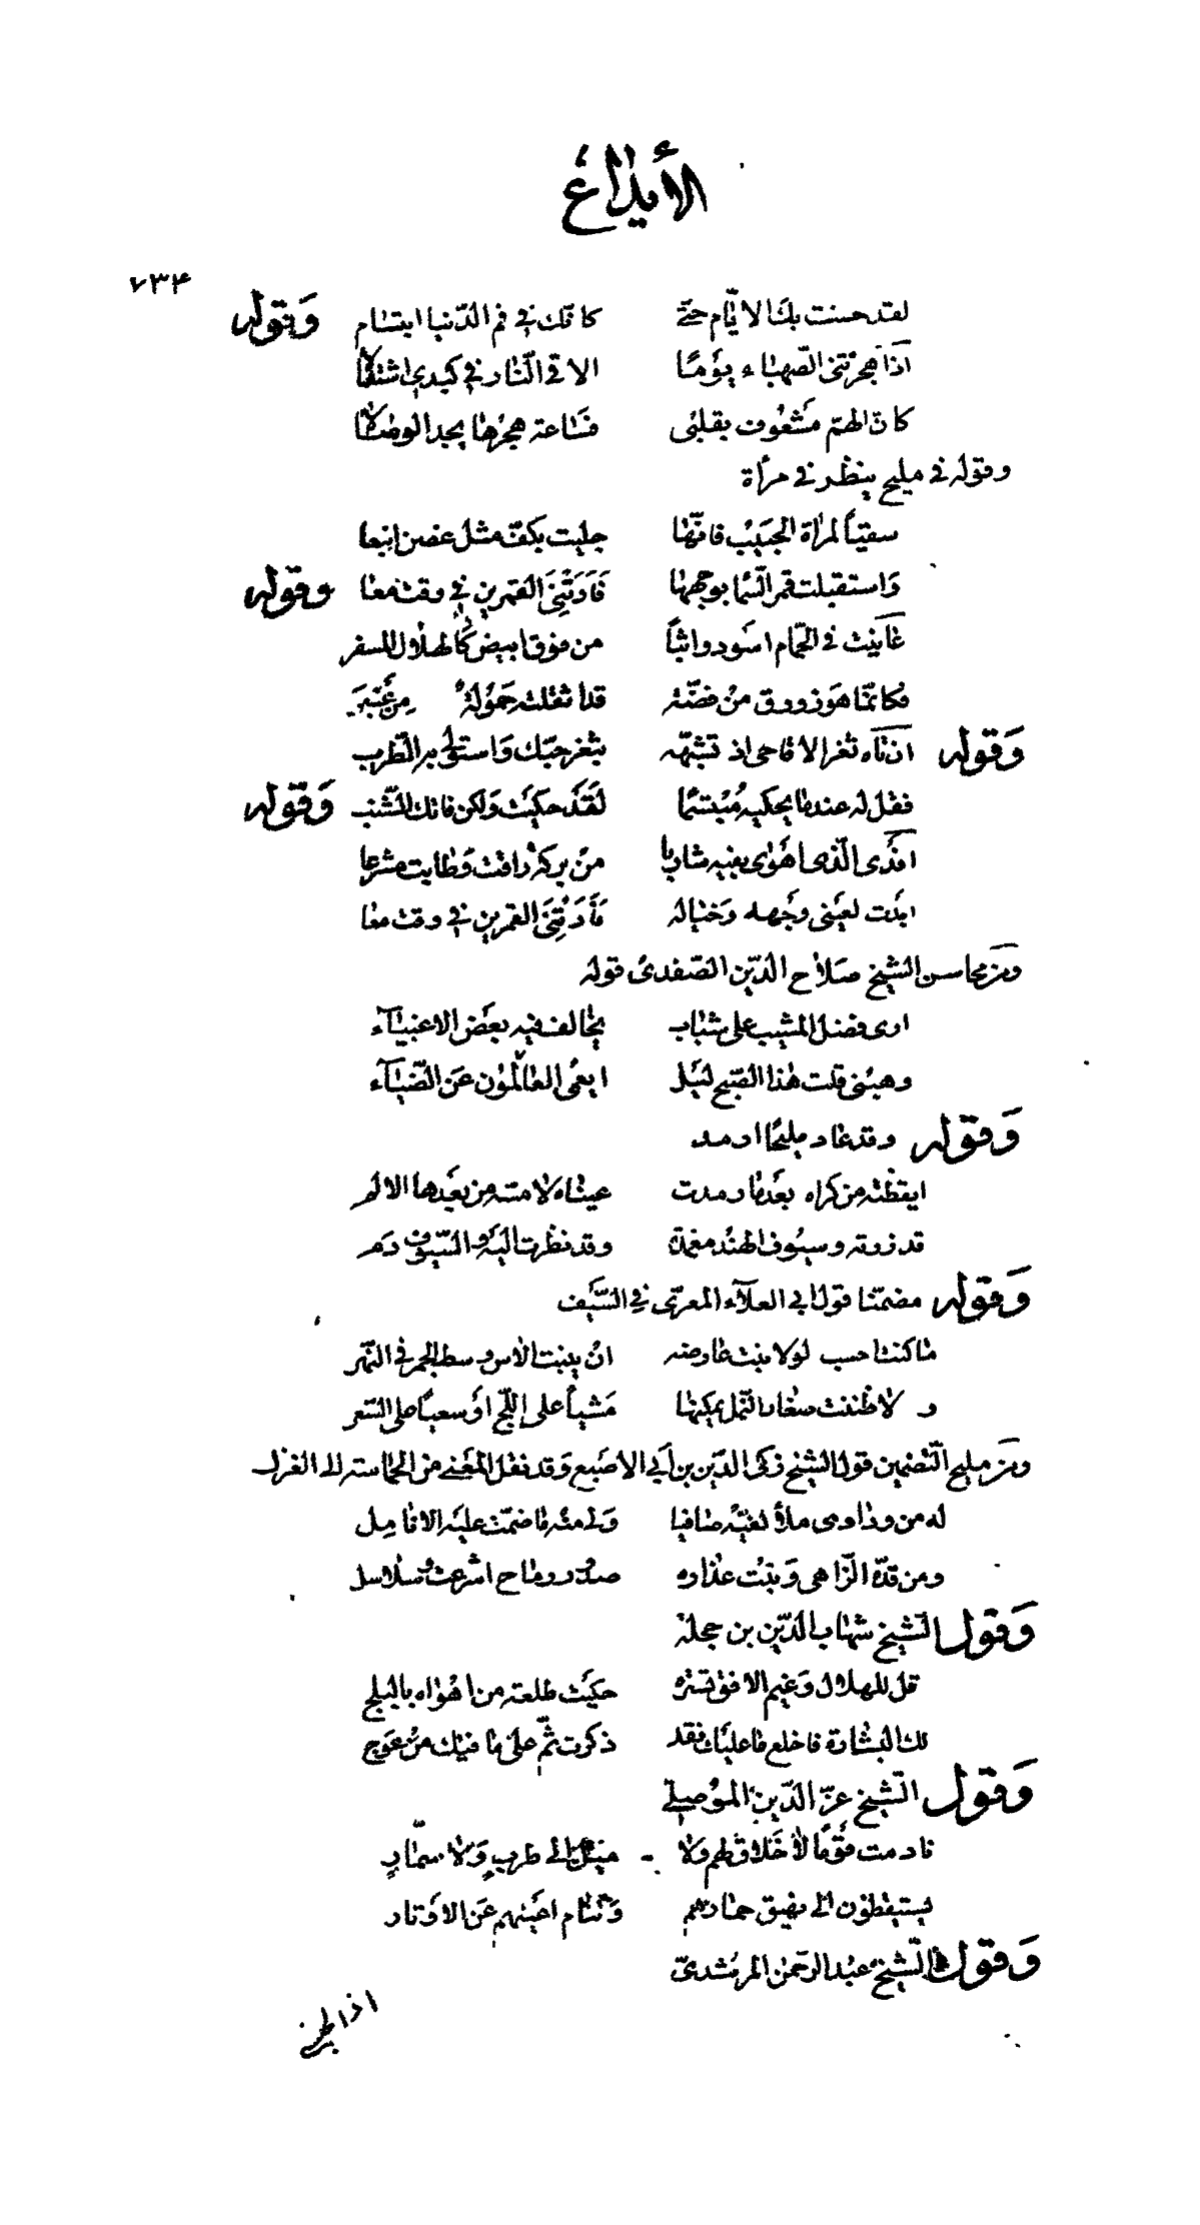 الأيداع
٧٣۴
لقد حسنت بك الايّام حتّى كانّك في فم الدّنيا ابتسام وقوله
اذا هجرتنى الصّهباء يومًا الاقى النّار في كبدي اشتعالا
كانّ الهمّ مشعوف بقلبى فساعة هجرها يجد الوصالا
وقوله فى مليح ينظر فى مرأة
سقيًا لمرأة الحبيب فانّها جليت بكفّ مثل غصن اينعا
واستقبلت قمر السّما بوجهها فَأَرَتْنِىَ القمرين في وقت معا وقوله
عاينت فى الحمّام اسود واثبًا من فوق ابيض كالهلال المسفر
فكانّما هو زورق من فضّة قد اثقلته حمولة من عنبر
وقوله ان تاه ثغر الاقاحى اذ تشبّهه بثغر حبّك واستولى به الطّرب
فقل له عندما يحكيه مبتسمًا لقد حكيت ولكن فاتك الشّنب وقوله
افدى الّذى اهوى بفيه شاربا من بركة راقت وطابت مشرعا
ابدت لعينى وجهه وخياله فأرتنى القمرين في وقت معا
ومن محاسن الشيخ صلاح الدّين الصّفدىّ قوله
ارى فضل المشيب على شباب يخالف فيه بعض الاغبيآء
وهبنى قلت هذا الصّبح ليل ايعمى العالمون عن الضّيآء
وقوله وقد عاد مليحًا ارمد
ايقظته من كراه بعدما رمدت عيناه لا مسّه من بعدها الالم
قد زرته وسيوف الهند مغمدة وقد نظرت اليه والسّيوف دم
وقوله مضمّنا قول ابي العلآء المعرّى في السّيف
ما كنت احسب لولا نبت عارضه ان ينبت الاس وسط الجمر فى النّهر
ولا ظننت صغار النّمل يمكنها مشيًا على اللّجّ او سعيًا على السّعر
ومن مليح التّضمين قول الشيخ زكى الدّين بن أبي الاصبع وقد نقل المعنى من الحماسة الى الغزل
له من ودادى ملأ كفّيه صافيا ولى منه ما ضمّت عليه الانامل
ومن قدّه الزّاهى ونبت عذاره صدور رماح اشرعت وسلاسل
وقول الشّيخ شهاب الدّين بن حجلة
قل للهلال وغيم الافق تستره حكيت طلعة من اهواه بالبلج
لك البشارة فاخلع ما عليك فقد ذكرت ثمّ على ما فيك من عوج
وقول الشّيخ عزّ الدّين الموصلي
نادمت قومًا لا خلاق لهم ولا ميل الى طرب ولا سمّار
يستيقظون الى نهيق حمارهم وتنام اعينهم عن الاوتار
وقول الشّيخ عبد الرّحمن المرشدىّ